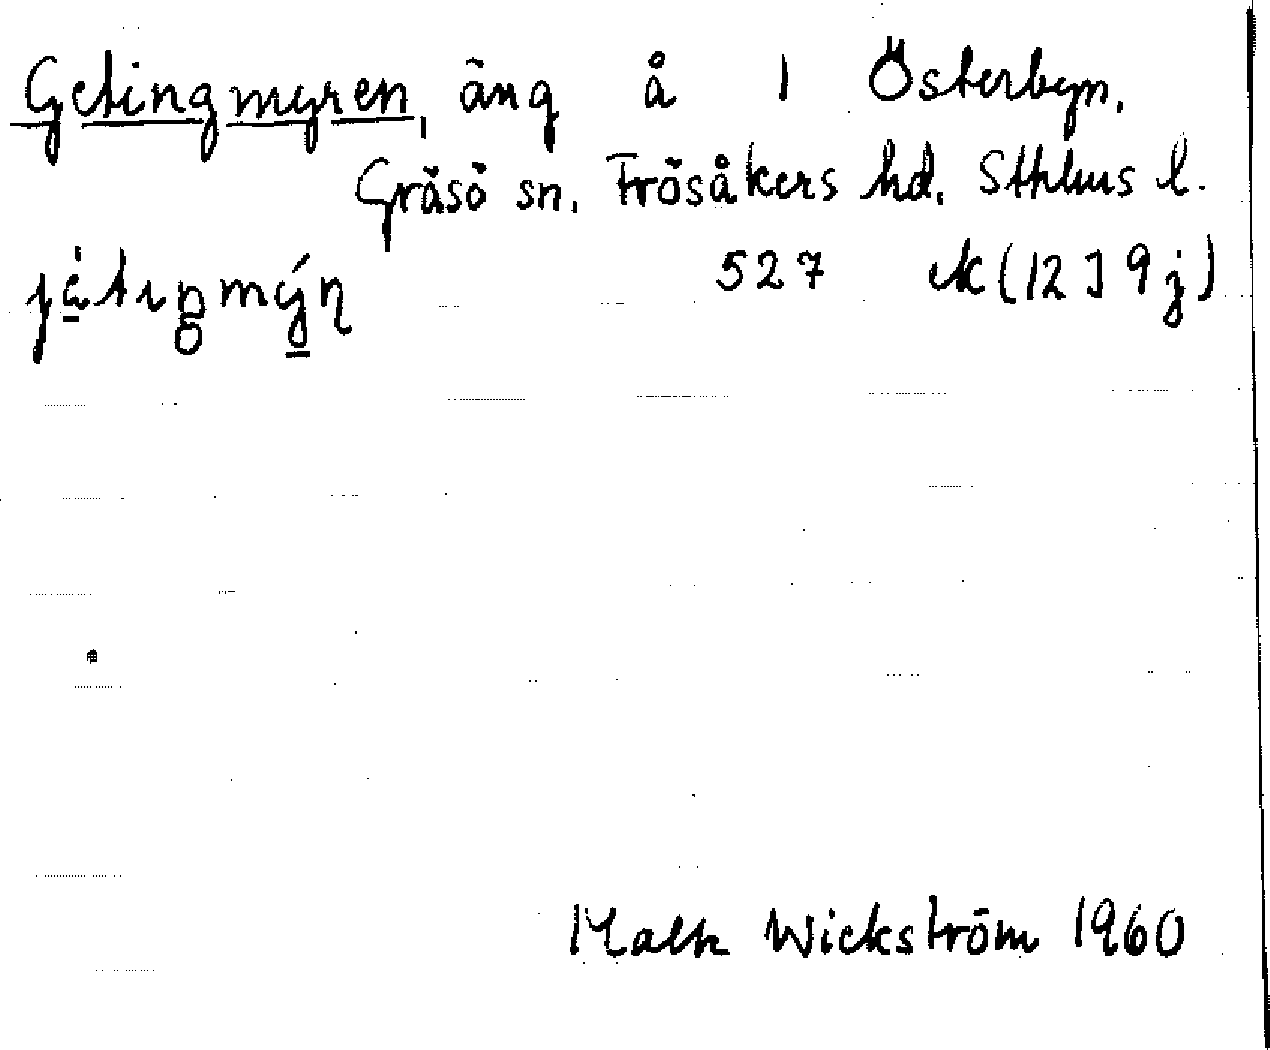 Getingmyren, äng å 1 Österbyn,
Gräsö sn. Frösåkers hd. Sthlms l.
527 ek (12 I 9 j)
Wickström 1960